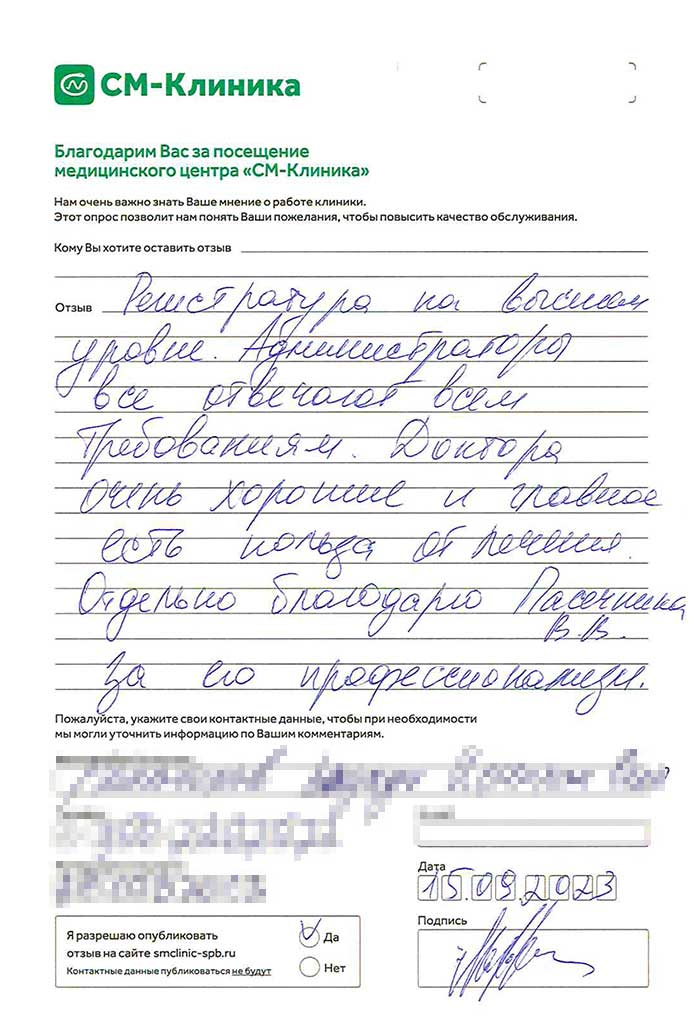 СМ-Клиника
Благодарим Вас за посещение
медицинского центра «СМ-Клиника»
Нам очень важно знать Ваше мнение о работе клиники.
Этот опрос позволит нам понять Ваши пожелания, чтобы повысить качество обслуживания.
Кому Вы хотите оставить отзыв
Отзыв Регистратура на высшем
уровне. Администраторы
все отвечают всем
требованиям. Доктора
очень хорошие и главное
есть польза от лечения.
Отдельно благодарю Пасечника
В.В.
за его профессионализм.
Пожалуйста, укажите свои контактные данные, чтобы при необходимости
мы могли уточнить информацию по Вашим комментариям.
Дата
15.09.2023
Подпись
Я разрешаю опубликовать
отзыв на сайте smclinic-spb.ru
Контактные данные публиковаться не будут
Да
Нет